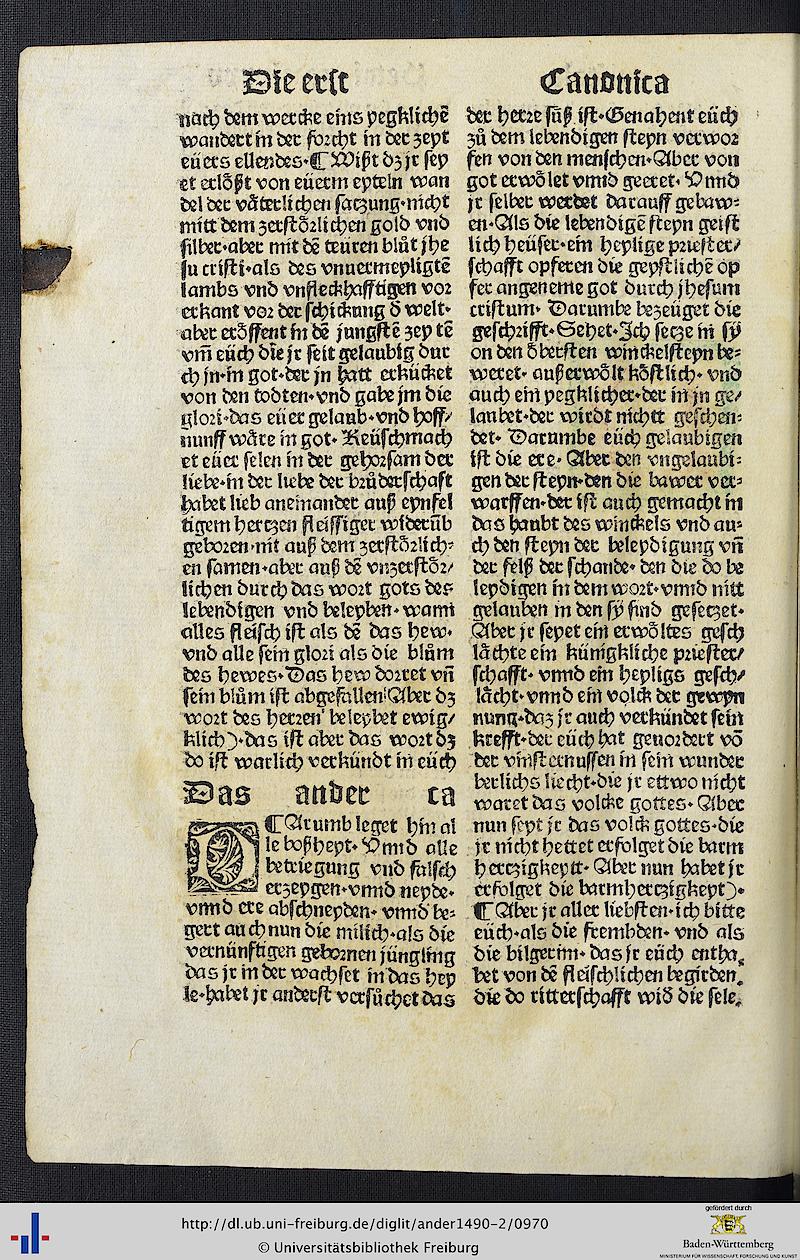 Die erst
Canonica
nach dem wercke eins yegklichē
wandert in der forcht in der zeyt
eüers ellendes·¶ Wißt dz jr sey
et erlößt von eüerm eyteln wan
del der väterlichen satzung·nicht
mitt dem zerstörlichen gold vnd
silber·aber mit dē teüren blůt jhe
su cristi·als des vnuermeyligtē
lambs vnd vnfleckhafftigen vor
erkant vor der schickung d̄ welt·
aber eröffent in dē jungstē zey tē
vm̄ eüch die jr seit gelaubig dur
ch jn·in got·der jn hatt erkücket
von den todten·vnd gabe jm die
glori·das eüer gelaub·vnd hoff⸗
nunff wäre in got· Keüschmach
et eüer selen in der gehorsam der
liebe·in der liebe der brůderschaft
habet lieb aneinander auß eynfel
tigem hertzen fleissiger widerüb
geboren·nit auß dem zerstörlich⸗
en samen·aber auß dē vnzerstör⸗
lichen durch das wort gots des
lebendigen vnd beleyben· wann
alles fleisch ist als dē das hew·
vnd alle sein glori als die blům
des hewes·Das hew dorret vn̄
sein blům ist abgefallen Aber dz
wort des herren beleybet ewig⸗
klich)·das ist aber das wort dz
do ist warlich verkündt in eüch
Das ander ca
D¶Arumb leget hin al
le boßheyt· Vnnd alle
betriegung vnd falsch
erzeygen·vnnd neyde·
vnnd ere abschneyden· vnnd be⸗
gert auch nun die milich·als die
vernünftigen gebornen jüngling
das jr in der wachset in das hey
le·habet jr anderst versůchet das
der herre süß ist·Genahent eüch
zů dem lebendigen steyn verwor
fen von den menschen·Aber von
got erwölet vnnd geeret· Vnnd
jr selber werdet darauff gebaw⸗
en·Als die lebendigē steyn geist
lich heüser·ein heylige priester⸗
schafft opferen die geystlichē op
fer angeneme got durch jhesum
cristum· Darumbe bezeüget die
geschrifft·Sehet·Ich setze in sy
on den öbersten winckelsteyn be⸗
weret· außerwölt köstlich· vnd
auch ein yegklicher·der in jn ge⸗
laubet·der wirdt nichtt geschen⸗
det· Darumbe eüch gelaubigen
ist die ere· Aber den vngelaubi⸗
gen der steyn·den die bawer ver⸗
warffen·der ist auch gemacht in
das haubt des winckels vnd au⸗
ch den steyn der beleydigung vn̄
der felß der schande· den die do be
leydigen in dem wort· vnnd nitt
gelauben in den sy sind gesetzet·
Aber jr seyet ein erwöltes gesch
lächte ein künigkliche priester⸗
schafft· vnnd ein heyligs gesch⸗
lächt· vnnd ein volck der gewyn
nung·daz jr auch verkündet sein
krefft·der eüch hat geuordert vō
der vinsternussen in sein wunder
berlichs liecht·die jr ettwo nicht
waret das volcke gottes· Aber
nun seyt jr das volck gottes·die
jr nicht hettet erfolget die barm
hertzigkeytt· Aber nun habet jr
erfolget die barmhertzigkeyt)·
¶ Aber jr aller liebsten·ich bitte
eüch·als die frembden· vnd als
die bilgerim· das jr eüch entha⸗
bet von dē fleischlichen begirden·
die do ritterschafft wid̄ die sele·
http://dl.ub.uni-freiburg.de/diglit/ander1490-2/0970
© Universitätsbibliothek Freiburg
gefördert durch
Baden-Württemberg
MINISTERIUM FÜR WISSENSCHAFT, FORSCHUNG UND KUNST